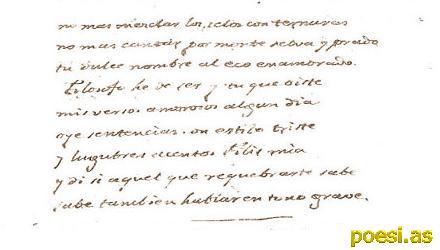 no mas mezclar los zelos con ternuras
no mas cantar por monte selva y prado
tu dulce nombre al eco enamorado.
Filosofo he de ser y tu que oiste
mis versos amorosos algun dia
oye sentencias en estilo triste
y lugubres acentos Filis mia
y di si aquel que requebrarte sabe
sabe tambien hablar en tono grave.
poesi.as